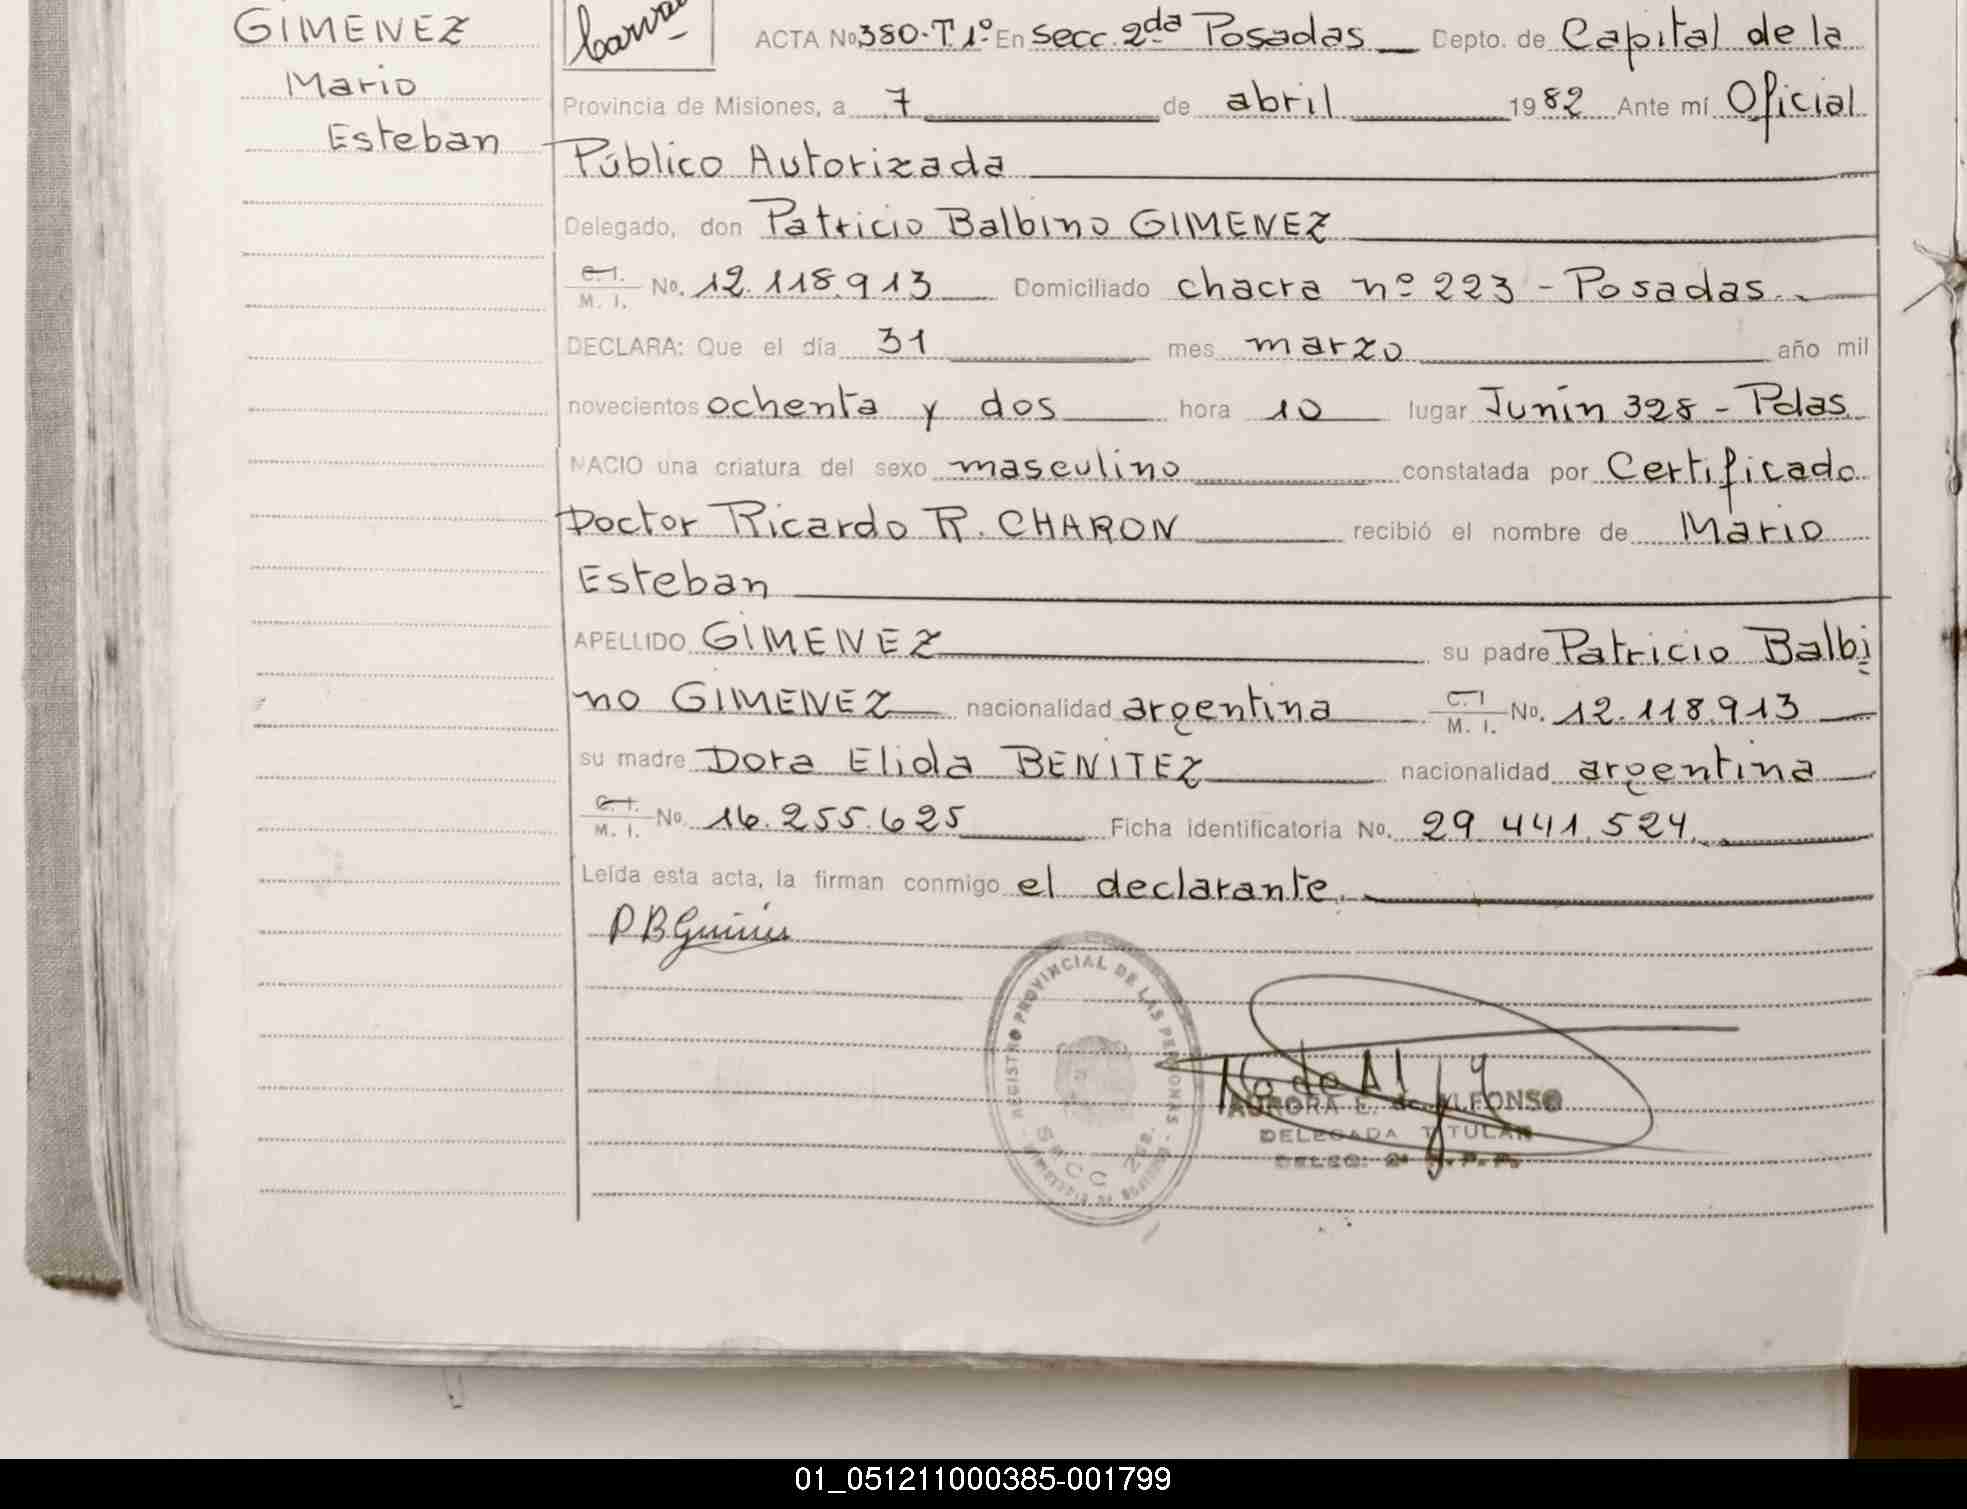 GIMENEZ
Mario
Esteban
ACTA No 380-T.1º En Secc. 2da Posadas Depto. de Capital de la
Provincia de Misiones, a 7 de abril 1982 Ante mí Oficial
Público Autorizada
Delegado, don Patricio Balbino GIMENEZ
C.I. M. I. No. 12.118.913 Domiciliado chacra nº 223 - Posadas.
DECLARA: Que el día 31 mes marzo año mil
novecientos ochenta y dos hora 10 lugar Junín 328 - Pdas.
NACIO una criatura del sexo masculino constatada por Certificado
Doctor Ricardo R. CHARON recibió el nombre de Mario
Esteban
APELLIDO GIMENEZ su padre Patricio Balbi
no GIMENEZ nacionalidad argentina C.I M. I. No. 12.118.913
su madre Dora Elida BENITEZ nacionalidad argentina
C.I. M. I. No. 16.255.625 Ficha identificatoria No. 29.441.524.
Leída esta acta, la firman conmigo el declarante.
REGISTRO PROVINCIAL DE LAS PERSONAS
SECC 2da.
AURORA E. de ALFONSO
DELEGADA TITULAR
DELEG. 2ª R.P.P.
01_051211000385-001799